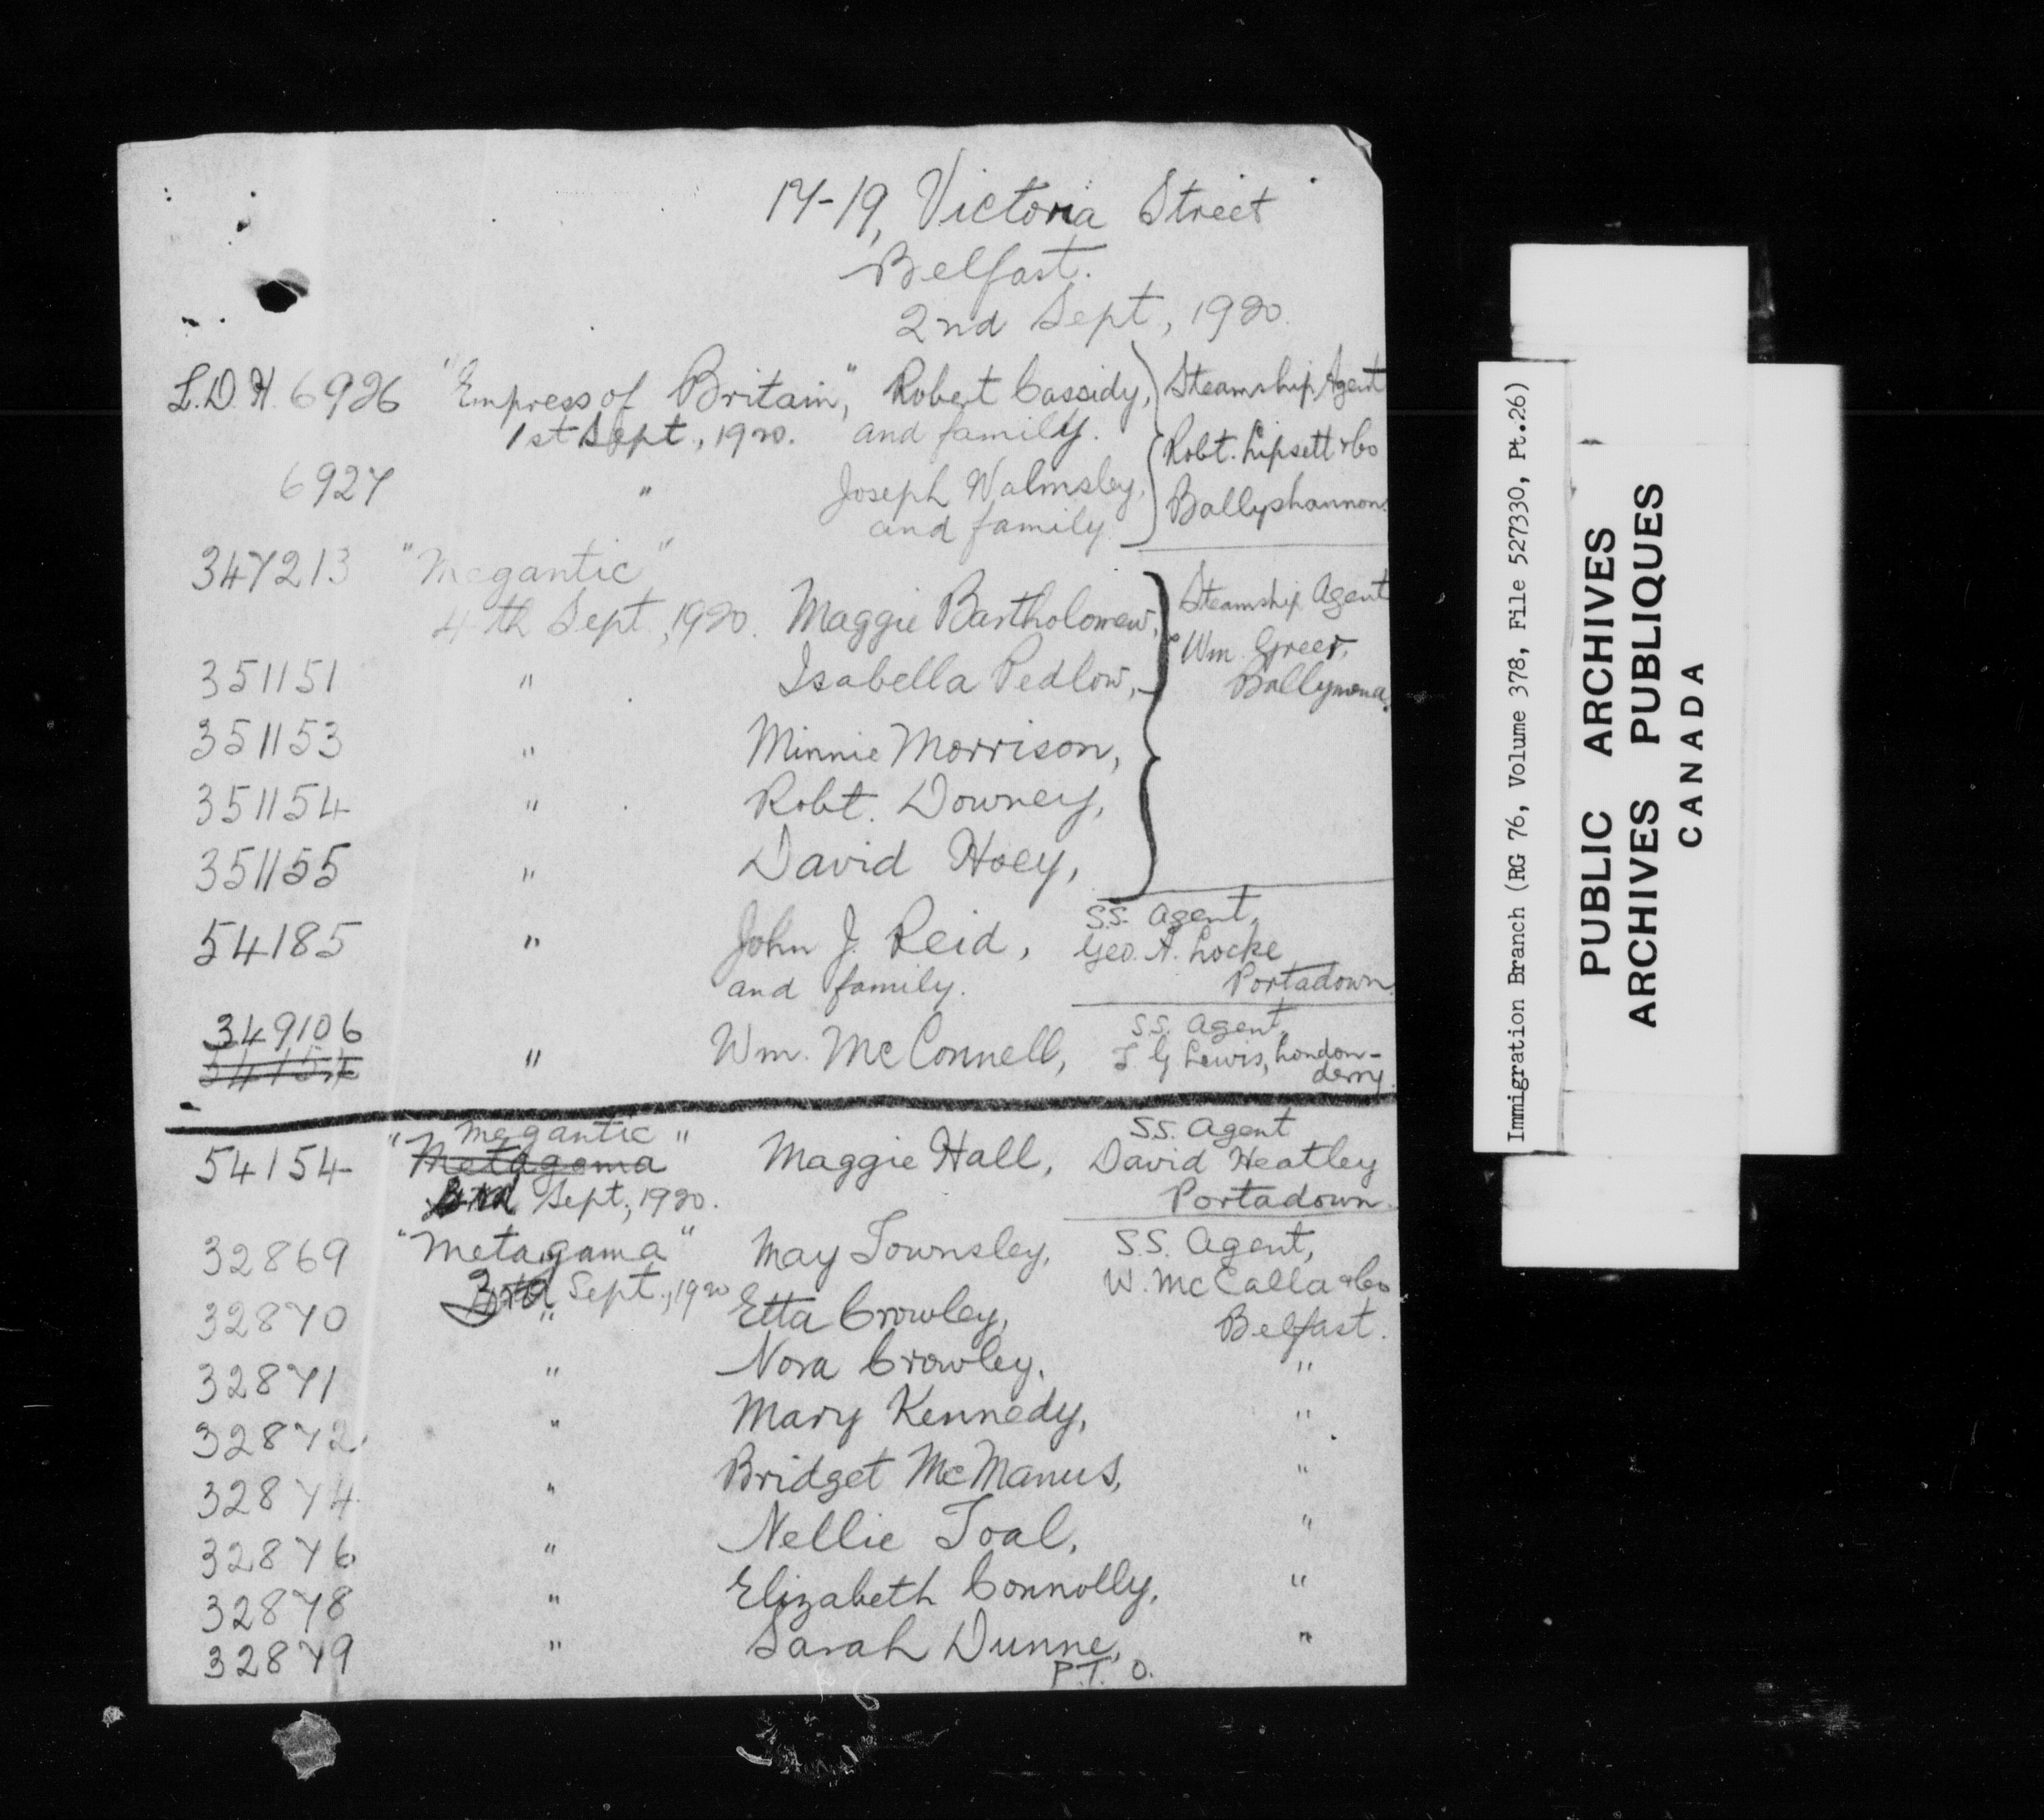 17-19, Victoria Street
Belfast.
2nd Sept, 1920.
L.D.H. 6926 "Empress of Britain," Robert Cassidy, Steamship Agent
1st Sept., 1920. and family. Robt. Lipsett & Co
6927 " Joseph Walmsley, Ballyshannon.
and family.
347213 "Megantic"
4th Sept., 1920. Maggie Bartholomew, Steamship Agent
Wm. Greer,
351151 " Isabella Pedlow, Ballymena.
351153 " Minnie Morrison,
351154 " Robt. Downey,
351155 " David Hoey,
S.S. Agent,
54185 " John J. Reid, Geo. A. Locke
and family. Portadown.
349106 S.S. Agent,
" Wm. McConnell, T. G Lewis, London-
54154 derry.
Megantic S.S. Agent
54154 "Metagama" Maggie Hall, David Heatley
Sept., 1920. Portadown.
32869 "Metagama" May Townsley, S.S. Agent,
Sept., 1920 W. McCalla & Co.
32870 " Etta Crowley, Belfast.
32871 " Nora Crowley, "
32872 " Mary Kennedy, "
32874 " Bridget McManus, "
32876 " Nellie Toal, "
32878 " Elizabeth Connolly, "
32879 " Sarah Dunne, "
P.T.O.
Immigration Branch (RG 76, Volume 378, File 527330, Pt.26)
PUBLIC ARCHIVES
ARCHIVES PUBLIQUES
CANADA